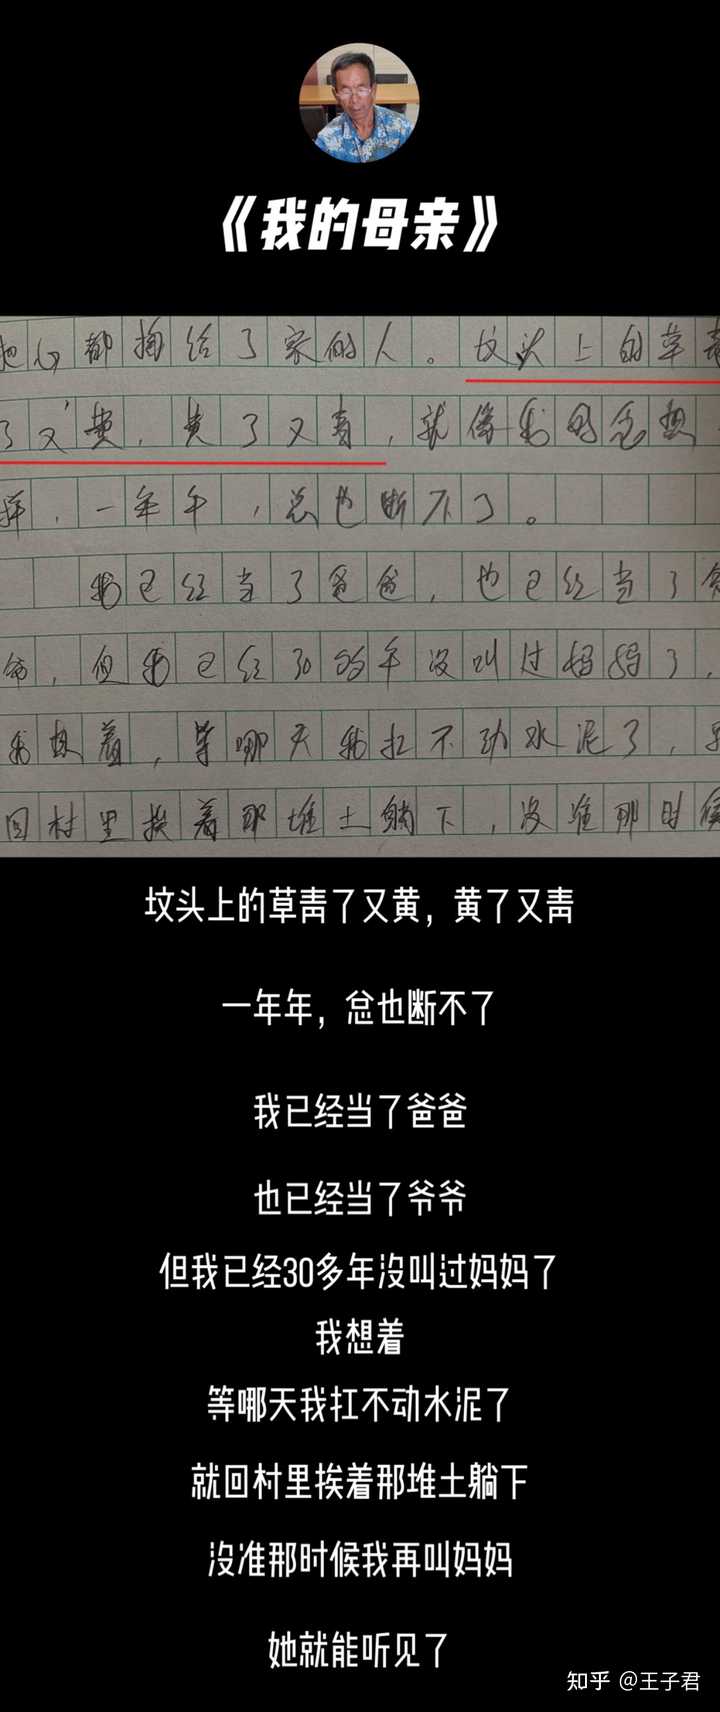 《我的母亲》
把心都掏给了家的人。坟头上的草青
了又黄，黄了又青，就像我的念想一
样，一年年，总也断不了。
我已经当了爸爸，也已经当了爷
爷，但我已经30多年没叫过妈妈了，
我想着，等哪天我扛不动水泥了，就
回村里挨着那堆土躺下，没准那时候
坟头上的草青了又黄，黄了又青
一年年，总也断不了
我已经当了爸爸
也已经当了爷爷
但我已经30多年没叫过妈妈了
我想着
等哪天我扛不动水泥了
就回村里挨着那堆土躺下
没准那时候我再叫妈妈
她就能听见了
知乎 @王子君